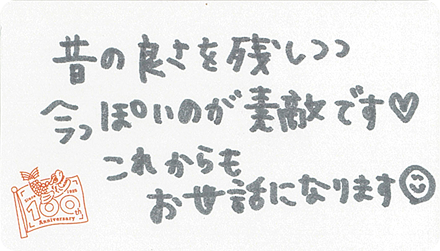 昔の良さを残しつつ
今っぽいのが素敵です♡
これからも
お世話になります☺
100th
Anniversary